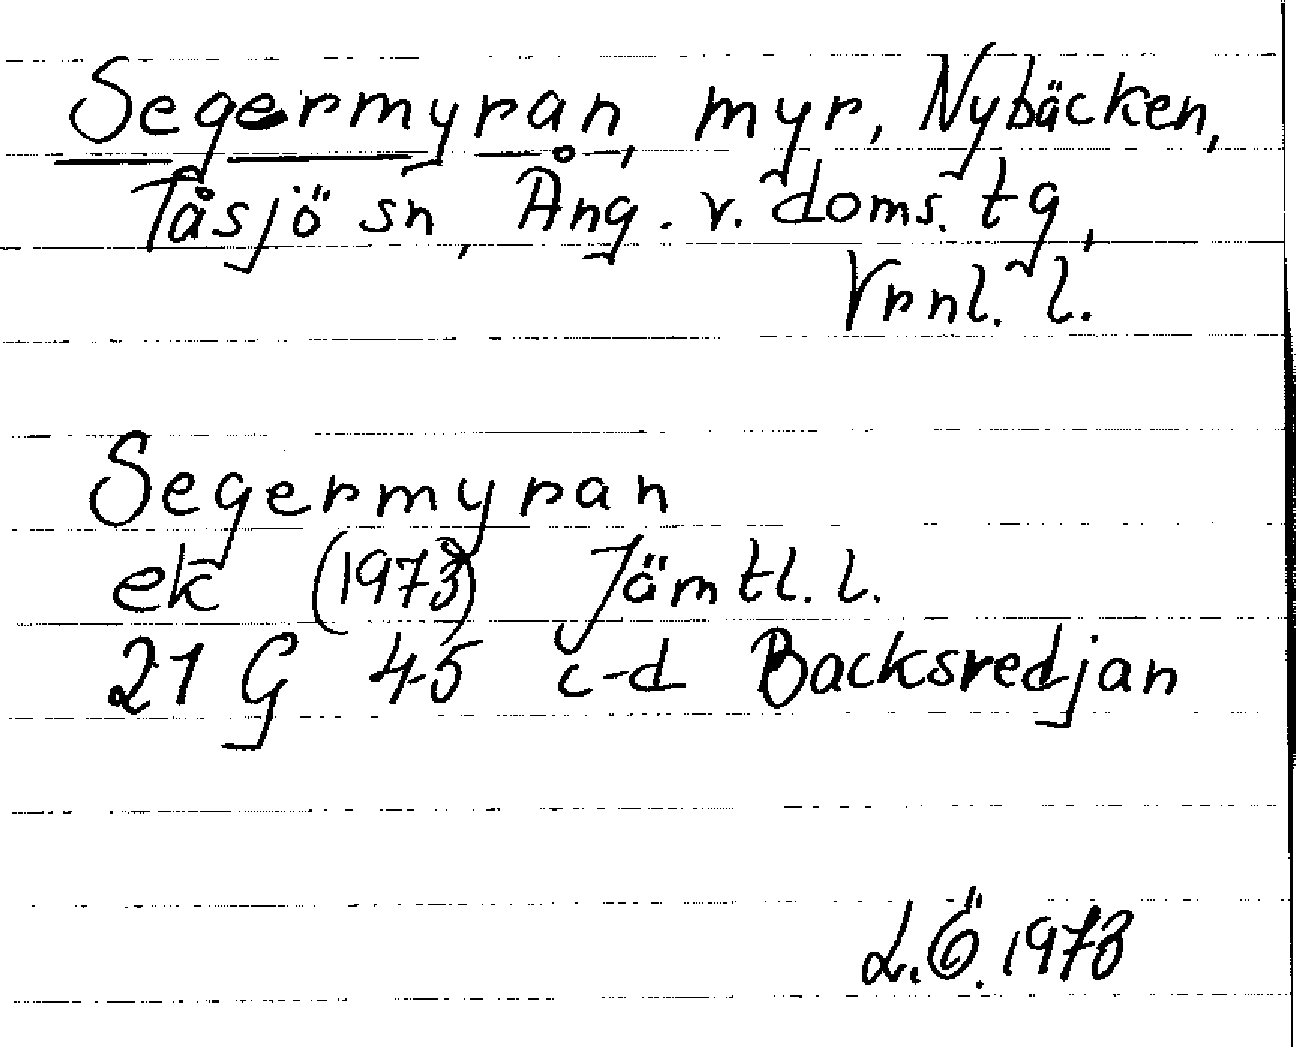 Segermyran, myr, Nybäcken,
Tåsjö sn, Ång. v. doms. tg,
Vrnl. l.
Segermyran
ek (1973) Jämtl. l.
21 G 45 c-d Backsredjan
L.Ö. 1973